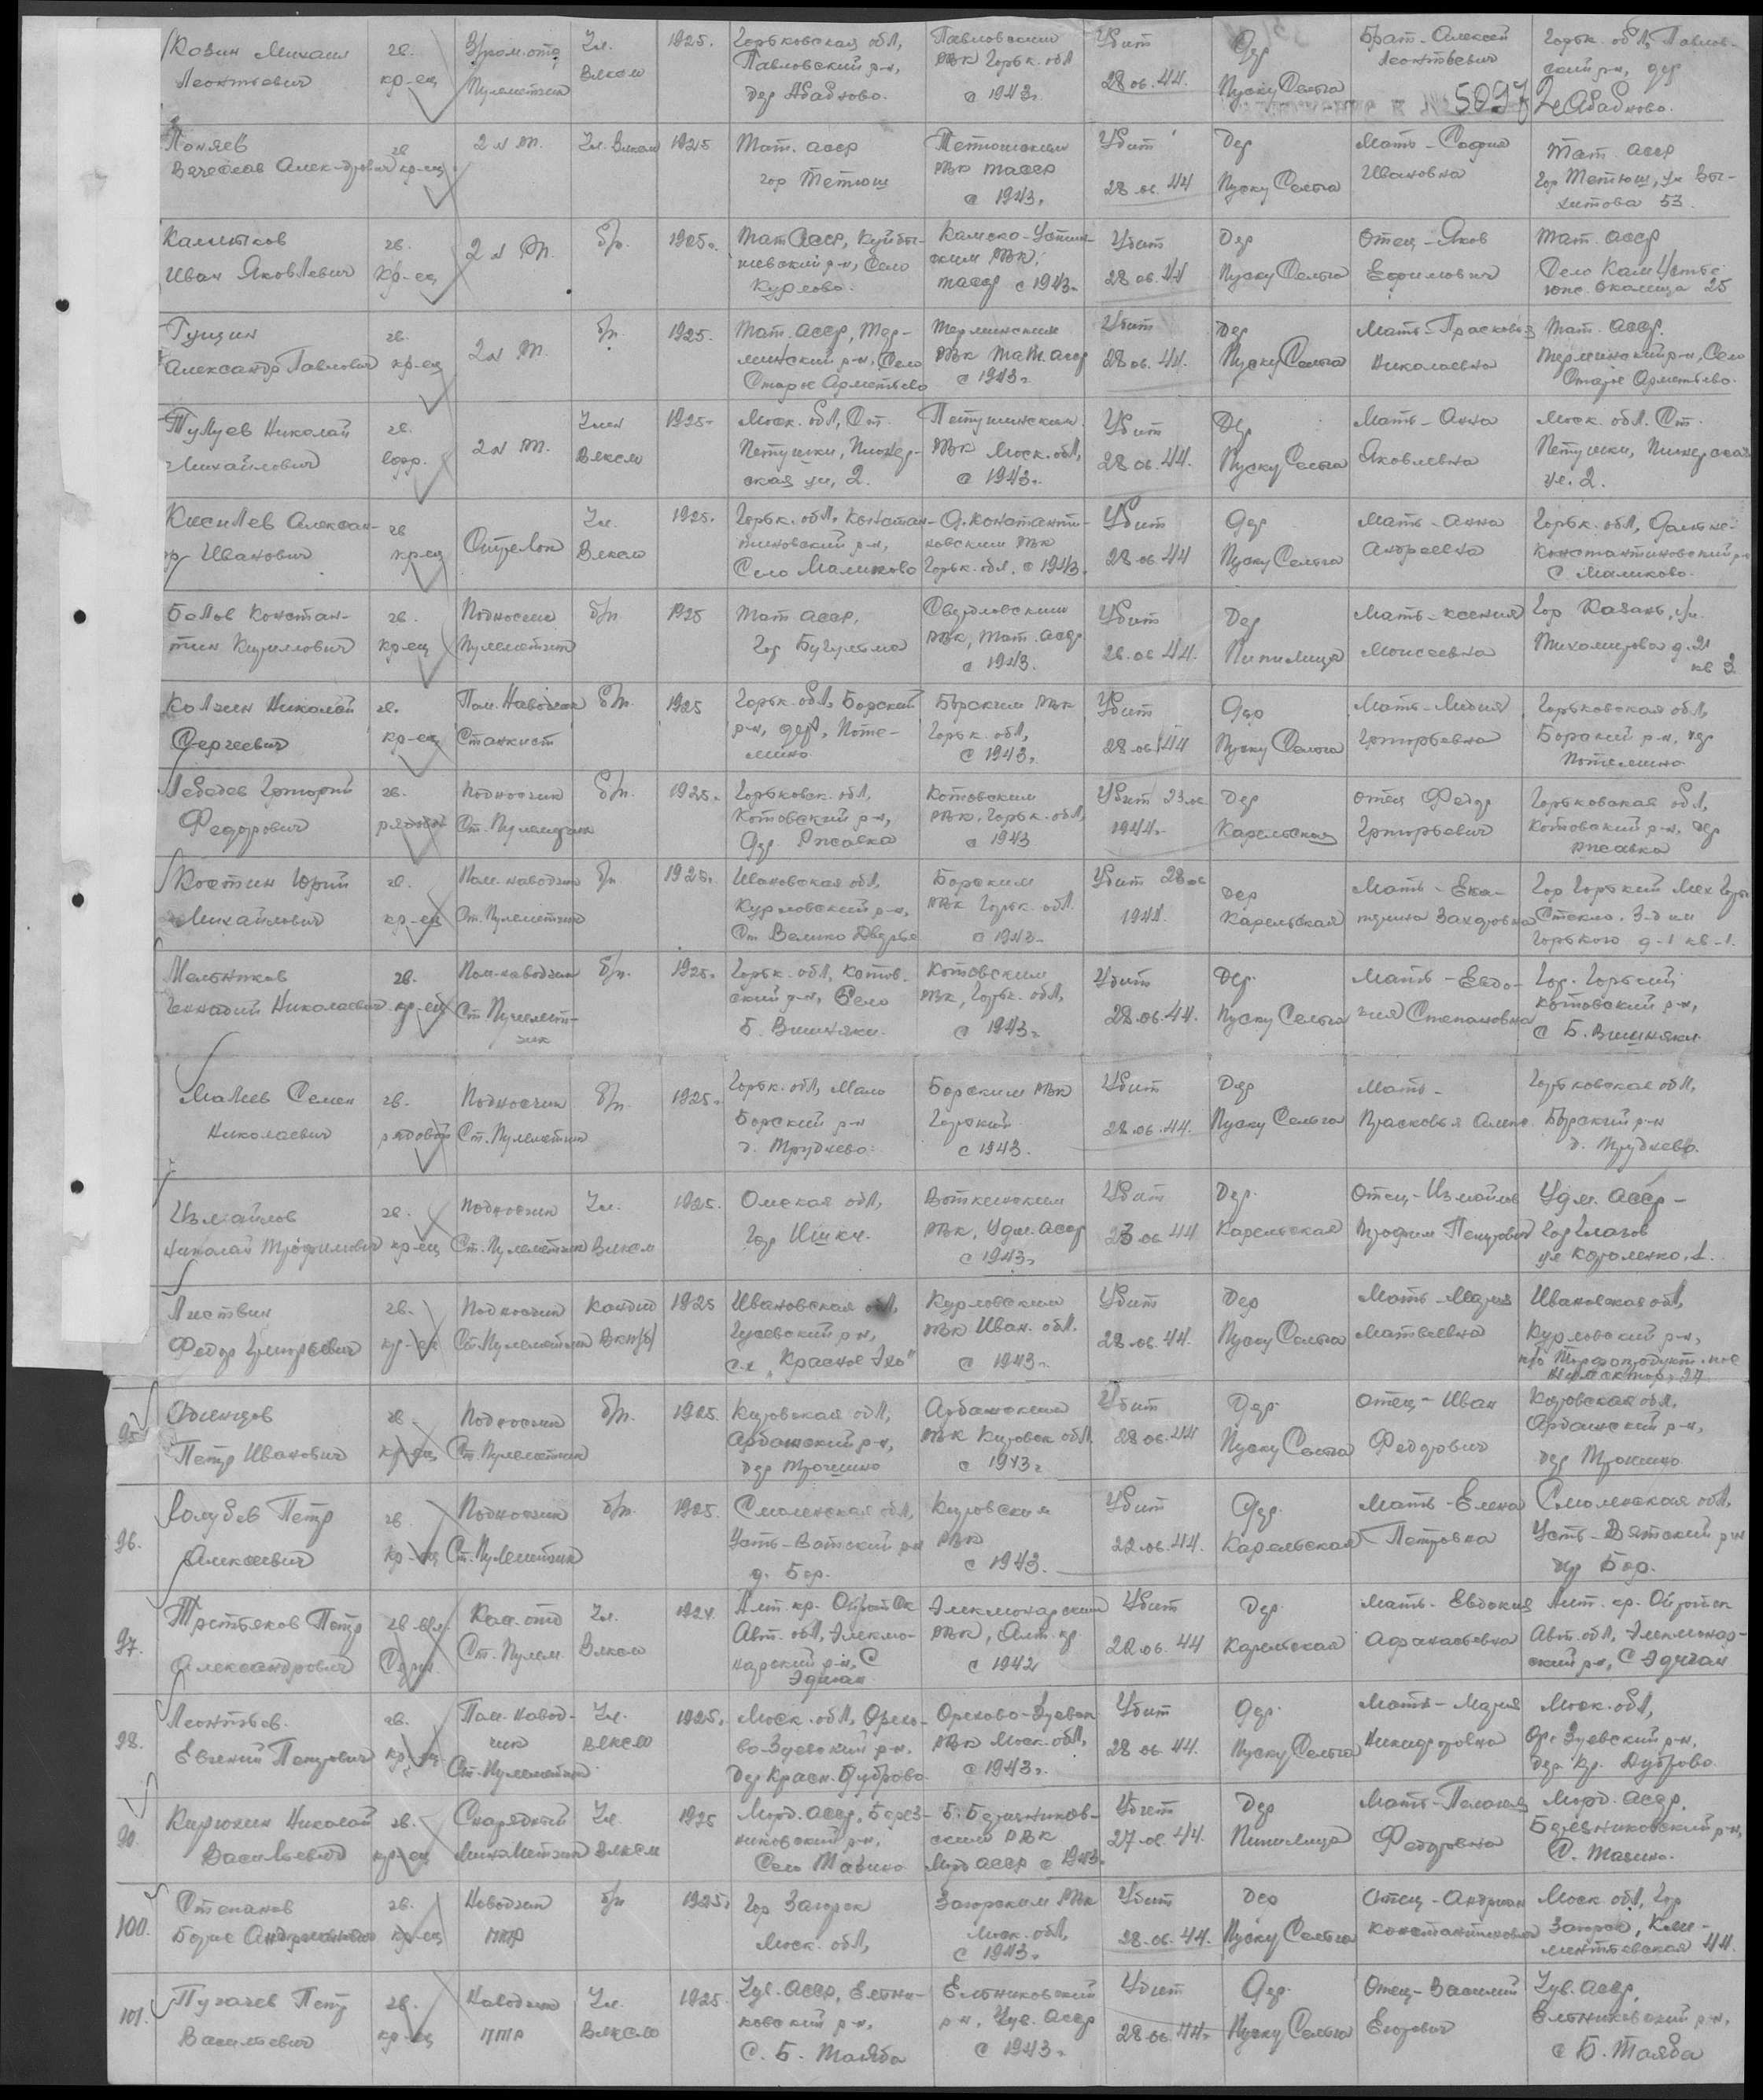 Козин Михаил гв. З/ром. отд Чл. 1925. Горьковская обл, Павловским Убит Дер Брат-Алексей Горьк. обл, Павлов-
Леонтьевич кр-ец Пулеметчик Влксм Павловский р-н, РВК Горьк. обл 28.06.44. Пуску Сельга Леонтьевич ский р-н, дер
дер Абабково. с 1943г. 5097 Абабково.
Поняев гв 2 № РП. Чл. Влксм 1925 Тат. асср Тетюшским Убит Дер Мать-София Тат. асср
Вячеслав Алек-дрович кр-ец гор Тетюш РВК тасср 28.06.44 Пуску Сельга Ивановна гор Тетюш, ул
с 1943г. 53.
гв. 2 № РП. б/п. 1925г. Тат Асср, Куйбы- Камско-Устин- Убит Дер Отец-Яков Тат. асср
Иван Яковлевич кр-ец шевский р-н, Село ским РВК, 28.06.44 Пуску Сельга Ефимович Село Кам Устье
Курлово. тасср с 1943г. 25
Гущин гв. 2 № РП. б/п. 1925. Тат. асср, Тер- Терминским Убит Дер Мать-Прасковья Тат. асср.
Александр Павлович кр-ец минский р-н, Село РВК Тат. асср 28.06.44. Пуску Сельга Николаевна Терминский р-н, Село
Старое с 1943г. Старое
Тулуев Николай гв. 2 № РП. Член 1925. Моск. обл, Ст. Петушинским Убит Дер Мать-Анна Моск. обл. Ст.
Михайлович Влксм Петушки, Пионер- РВК Моск. обл, 28.06.44. Пуску Сельга Яковлевна Петушки, Пионерская
ская ул, 2. с 1943г. ул. 2.
Киселев Алексан- гв Стрелок Чл. 1925. Горьк. обл, Констан- Д. Константи- Убит Дер Мать-Анна Горьк. обл, Дальне-
др Иванович кр-ец Влксм тиновский р-н, новским РВК 28.06.44 Пуску Сельга Андреевна Константиновский р-н
Село Маликово Горьк. обл. с 1943. с. Маликово.
Белов Констан- гв. Подносчик б/п. 1925 Тат асср, Свердловским Убит Дер Мать-Ксения Гор Казань, ул.
тин Кириллович кр-ец Пулеметчик гор Бугульма РВК, Тат. асср 26.06.44. Пинилица Моисеевна Тихомирова д. 21
с 1943. кв 3
Колзин Николай гв. Пом. Наводчик б/п. 1925 Горьк. обл, Борский Борским РВК Убит Дер Мать-Лидия Горьковская обл,
Сергеевич кр-ец Станкист р-н, дер, Поте- Горьк. обл, 28.06.44 Пуску Сельга Григорьевна Борский р-н, дер
мино с 1943г. Потемино
Лебедев Григорий гв. Подносчик б/п. 1925г. Горьковск. обл, Котовским Убит 23.06 Дер Отец Федор Горьковская обл,
Федорович рядовой Ст. Пулемдчика Котовский р-н, РВК, Горьк. обл, 1944г. Карельская Григорьевич Котовский р-н, дер
Дер Ржавка с 1943 Ржавка
Костин Юрий гв. Пом. наводчик б/п 1925. Ивановская обл, Борским Убит 28.06 Дер Мать-Ека- Гор Горький
Михайлович кр-ец Ст. Пулеметчик Курловский р-н, РВК Горьк. обл. 1944. Карельская терина Захаровна Стекло. З-д им
Ст Велико Дворье с 1943г. Горького д-1 кв-1.
Мельников гв. Пом-наводчик б/п. 1925. Горьк. обл, Котов. Котовским Убит Дер. Мать-Евдо- Гор. Горький
Геннадий Николаевич кр-ец Ст Пулемет- ский р-н, Село РВК, Горьк. обл, 28.06.44. Пуску Сельга кия Степановна Котовский р-н,
чик Б. Вишняки. с 1943г. с Б. Вишняки
Малиев Семен гв. Подносчик б/п. 1925. Горьк. обл, Мало Борским РВК Убит Дер Мать- Горьковская обл,
Николаевич рядовой Ст. Пулеметчик Борский р-н Горький 28.06.44. Пуску Сельга Прасковья Борский р-н
д. Труднево. с 1943. д. Труднево.
Измайлов гв. Подносчик Чл. 1925. Омская обл, Воткинским Убит Дер. Отец-Измайлов Удм. Асср-
Николай Трофимович кр-ец Ст. Пулеметчик Влксм Гор Ишим. РВК, Удм. асср 23.06.44 Карельская Трофим Петрович Гор Глазов
с 1943г ул Короленко, 1.
Листвин гв. Подносчик Кандид 1925 Ивановская обл, Курловским Убит Дер Мать-Мария Ивановская обл,
Федор Григорьевич кр-ец Ст. Пулеметчик ВКП/б/ Гусевский р-н, РВК Иван. обл. 28.06.44. Пуску Сельга Матвеевна Курловский р-н,
с.х „Красное Эхо" с 1943г. п/о
95 Оденцов гв. Подносчик б/п. 1925. Кировская обл, Арбажским Убит Дер. Отец-Иван Кировская обл,
Петр Иванович кр-ец Ст. Пулеметчик Арбажский р-н, РВК Кировск обл. 28.06.44 Пуску Сельга Федорович Арбажский р-н,
дер Трошино с 1943г дер Трошино
96. Голубев Петр гв. Подносчик б/п. 1925. Смоленская обл, Кировским Убит Дер. Мать-Елена Смоленская обл,
Алексеевич кр-ец Ст. Пулеметчик Усть-Вятский р-н РВК 22.06.44. Карельская Петровна Усть-Вятский р-н
д. Бор. с 1943. дер Бор.
97. Третьяков Петр гв. Ком. отд Чл. 1924. Алт. кр. Ойротск Элекмонарским Убит Дер. Мать-Евдокия Алт. кр. Ойротск
Александрович Серж. Ст. Пулем. Влксм Авт. обл, Элекмо- РВК, Алт. кр. 22.06.44 Карельская Афанасьевна Авт. обл, Элекмонар-
нарский р-н, С с 1942 ский р-н, С Эдиган
Эдиган
98. Леонтьев. гв. Пом. навод- Чл. 1925. Моск. обл, Орехо- Орехово-Зуевск Убит Дер. Мать-Мария Моск. обл,
Евгений Петрович кр-ец чик Влксм во-Зуевский р-н. РВК Моск. обл, 28.06.44. Пуску Сельга Никифоровна Ор. Зуевский р-н,
Ст. Пулеметчик Дер Красн. Дуброво с 1943г. Дер. Кр. Дуброво.
99. Кирюхин Николай гв. Снарядный Чл. 1925 Морд. асср, Берез- Б. Березников- Убит Дер Мать-Пелагия Морд. асср,
Васильевич кр-ец Минометчик Влксм никовский р-н, ским РВК 27.06.44. Пинилица Федоровна Березниковский р-н,
Село Тазино Морд асср с 1943. С. Тазино.
100. Степанов гв. Наводчик б/п 1925. Гор Загорск Загорским РВК Убит Дер Отец-Андриан Моск. обл, Гор
Борис Андрианович кр-ец ПТР Моск. обл, Моск. обл, 28.06.44. Пуску Сельга Константинович Загорск, Клим-
с 1943г. ентьевская 44.
101. Пугачев Петр гв. Наводчик Чл. 1925. Чув. АССР, Ельни- Ельниковский Убит Дер. Отец-Василий Чув. асср,
Васильевич кр-ец ПТР Влксм ковский р-н, р-н, Чув. асср 28.06.44. Пуску Сельга Егорович Ельниковский р-н,
С. Б. Таяба с 1943г. с Б. Таяба